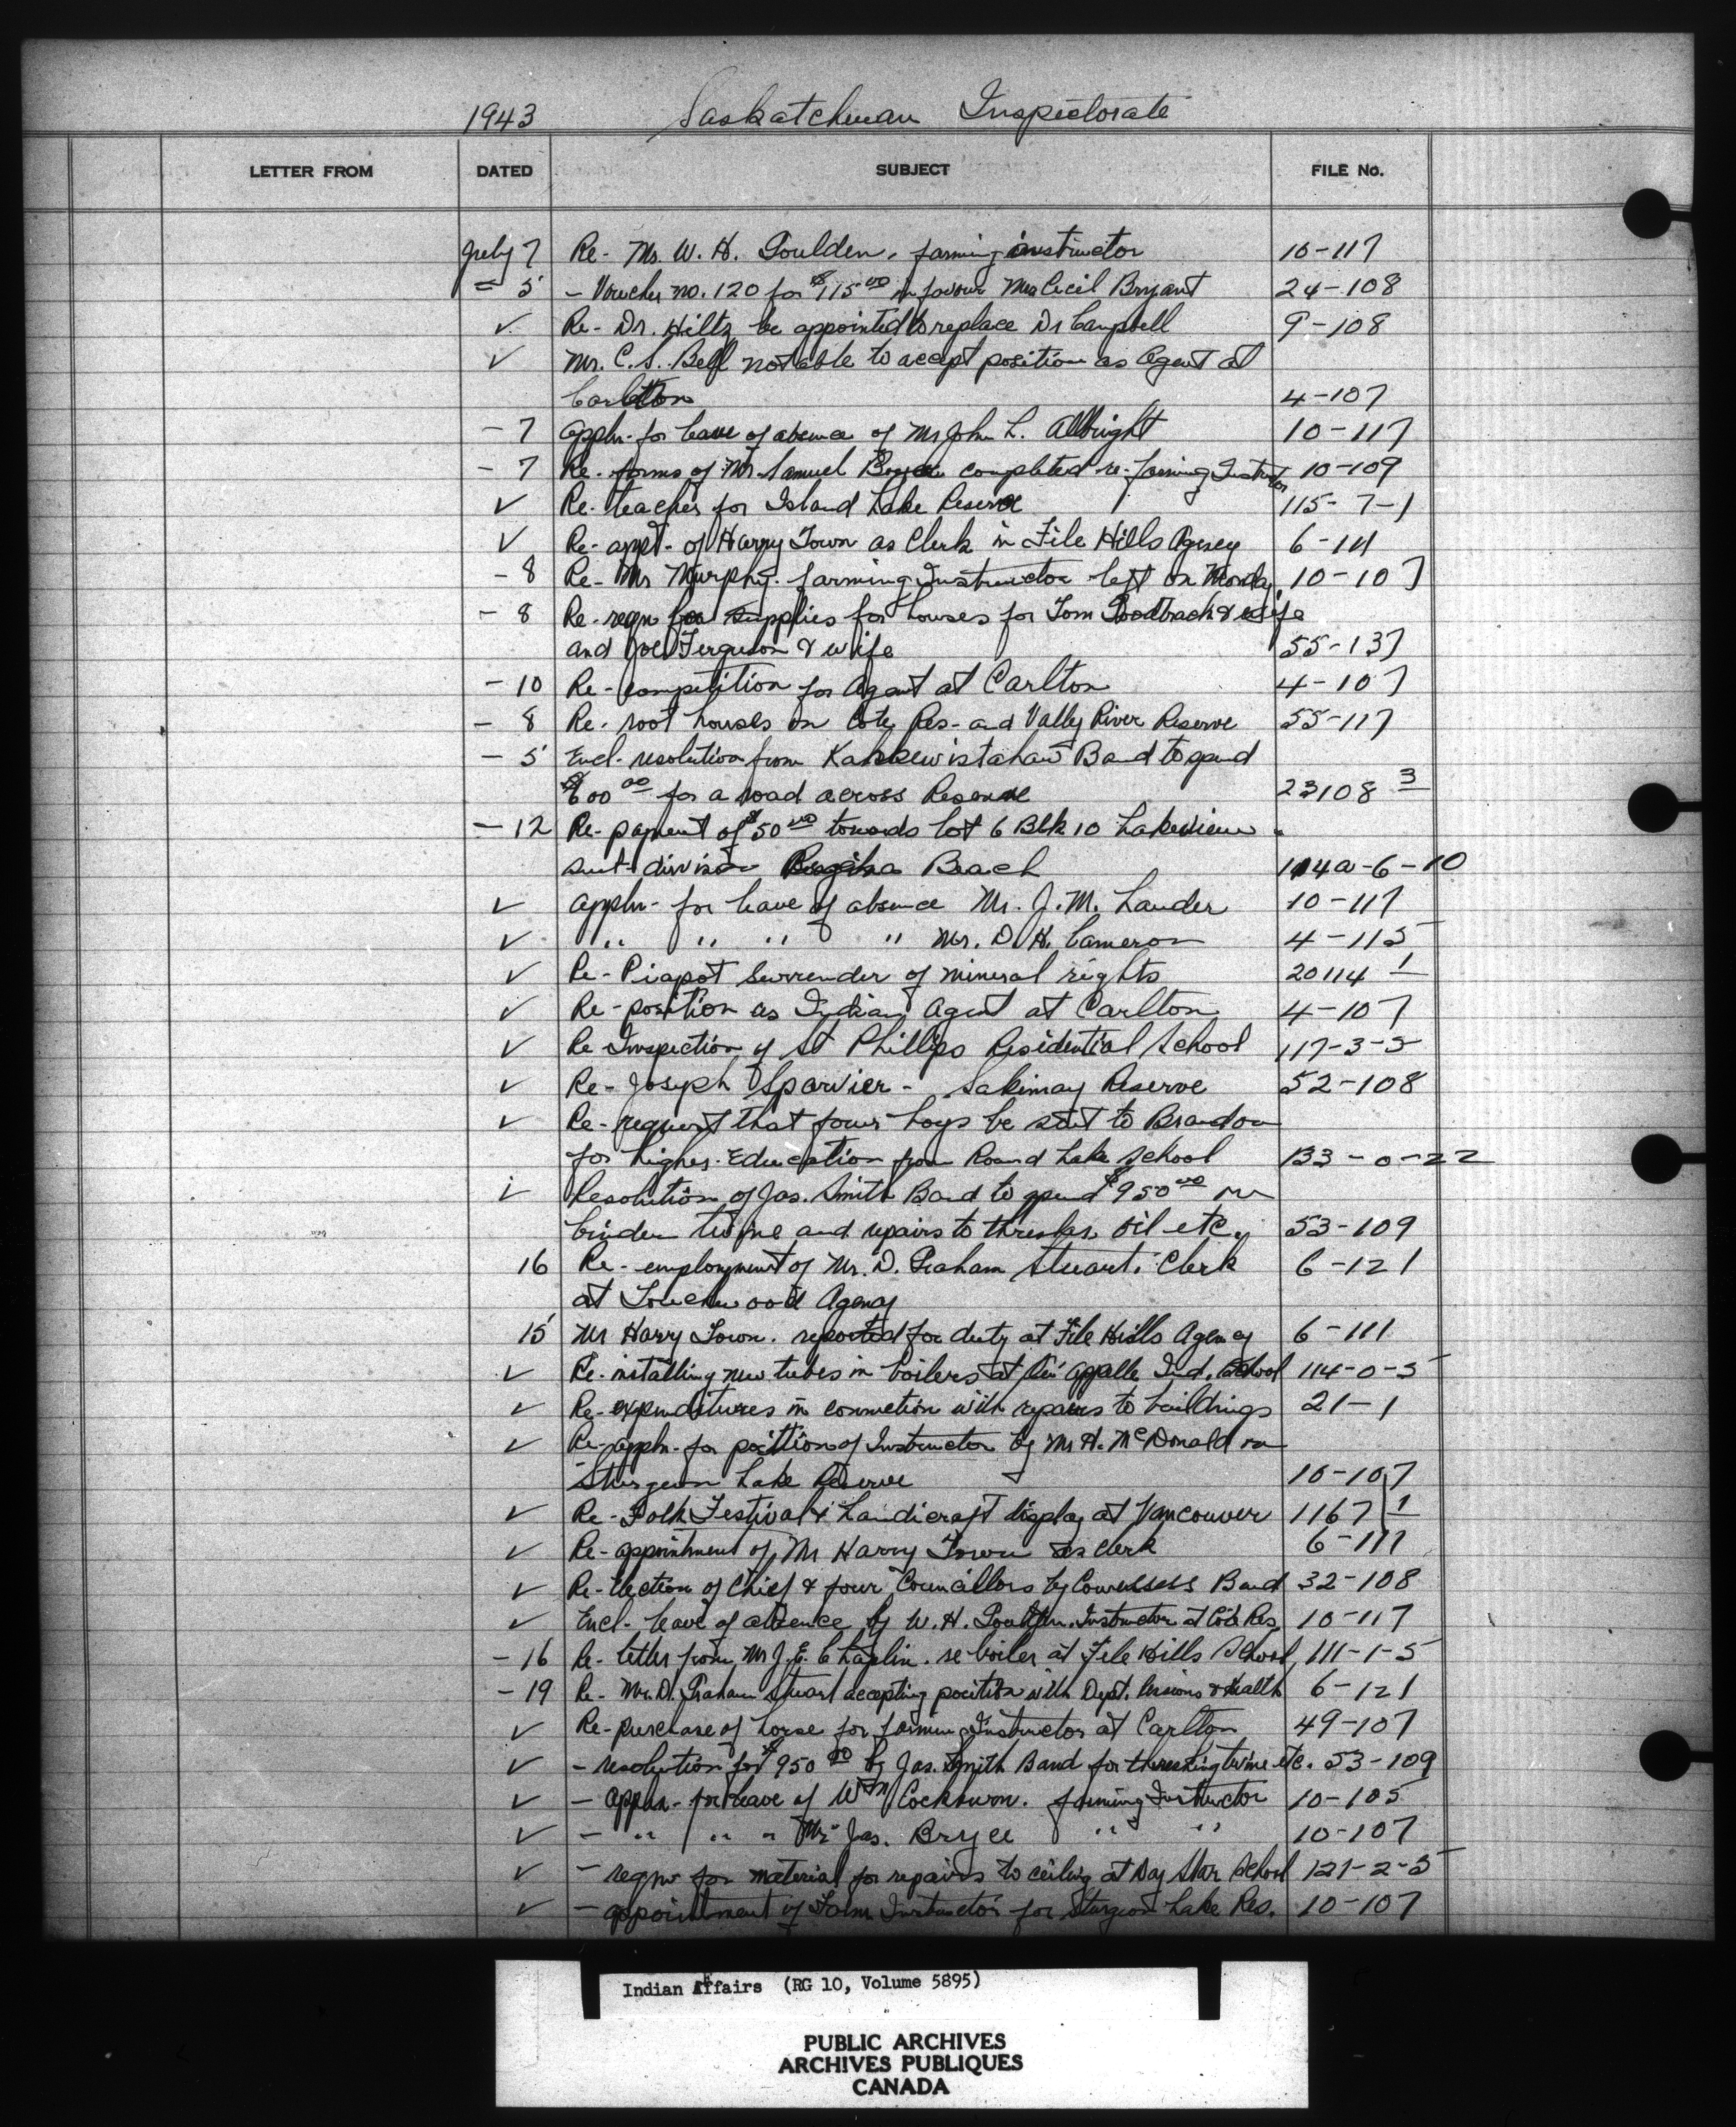 1943 Saskatchewan Inspectorate
LETTER FROM DATED SUBJECT FILE No.
July 7 Re- Mr. W. H. Goulden, farming instructor 10-117
= 5 - Voucher no. 120 for $115.00 in favour Mrs Cecil Bryant 24-108
✓ Re- Dr. Hiltz be appointed to replace Dr Campbell 9-108
✓ Mr. C. S. Bell not able to accept position as Agent at
Carlton 4-107
- 7 Appln- for leave of absence of Mr John L. Albright 10-117
- 7 Re- forms of Mr Samuel completed re-farming Instructor 10-109
✓ Re- teacher for Island Lake Reserve 115-7-1
✓ Re- appt- of Harry Town as Clerk in File Hills Agency 6-111
- 8 Re- Mr Murphy. farming Instructor left on Monday 10-107
- 8 Re- reqn for supplies for houses for Tom & wife
and Joe Ferguson & wife 55-137
- 10 Re- competition for Agent at Carlton 4-107
- 8 Re- root houses on Cote Res- and Vally River Reserve 55-117
- 5 Encl- resolution from Band to spend
$600.00 for a road across Reserve 23108 3
- 12 Re- payment of $50.00 towards Lot 6 Blk 10 Lakeview
sub-division Regina Beach 114a-6-10
✓ Appln- for leave of absence Mr. J. M. Lauder 10-117
✓ " " " " Mr. D. H. Cameron 4-115
✓ Re- Piapot Surrender of mineral rights 20114 1
✓ Re- position as Indian Agent at Carlton 4-107
✓ Re Inspection of St Phillips Residential School 117-3-5
✓ Re- Joseph Sparvier- Sakimay Reserve 52-108
✓ Re- request that four boys be sent to Brandon
for higher Education from Round Lake School 133-0-22
✓ Resolution of Jas. Smith Band to spend $950.00 on
binder twine and repairs to thresher oil etc. 53-109
16 Re- employment of Mr. D. Graham Stuart. Clerk 6-121
at Touchwood Agency
15 Mr Harry Town. reported for duty at File Hills Agency 6-111
✓ Re- installing new tubes in boilers at Qu'Appelle Ind. School 114-0-5
✓ Re- expenditures in connection with repairs to buildings 21-1
✓ Re- appln- for position of Instructor by Mr H. McDonald on
Sturgeon Lake Reserve 10-107
✓ Re- Folk Festival & handicraft display at Vancouver 1167 1
✓ Re- appointment of Mr Harry Town as clerk 6-111
✓ Re- Election of Chief & four Councillors by Cowessess Band 32-108
✓ Encl- leave of absence by W. H. Goulden. Instructor at Cote Res. 10-117
- 16 Re- letter from Mr J. E. Chaplin. re boiler at File Hills School 111-1-5
- 19 Re- Mr. D. Graham Stuart accepting position with Dept. Pensions & Health 6-121
✓ Re- purchase of horse for farming Instructor at Carlton 49-107
✓ - resolution for $950.00 by Jas. Smith Band for threshing twine etc. 53-109
✓ - Appln- for leave of Wm Cockburn. farming Instructor 10-105
✓ - " " " Mr Jas. Bryce " " 10-107
✓ - reqn for material for repairs to ceiling at Day Star School 121-2-5
✓ - appointment of Farm Instructor for Sturgeon Lake Res. 10-107
Indian Affairs (RG 10, Volume 5895)
PUBLIC ARCHIVES
ARCHIVES PUBLIQUES
CANADA